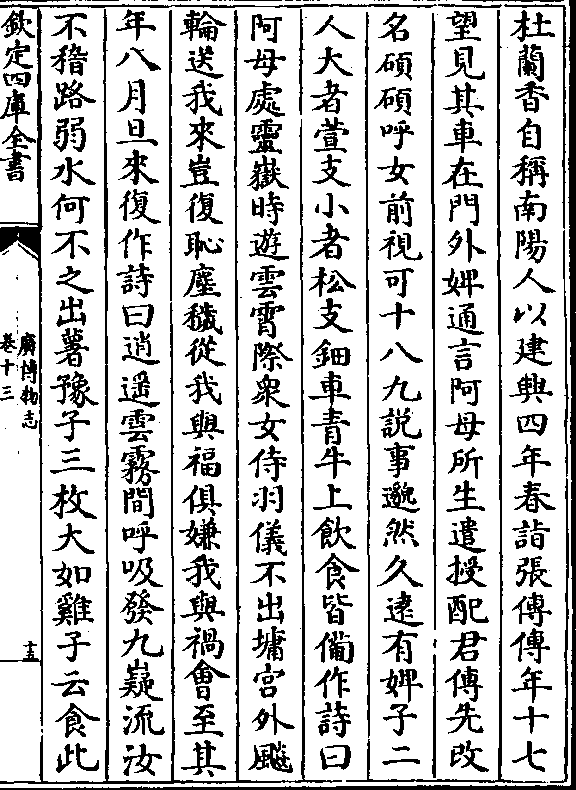 杜蘭香自稱南陽人以建興四年春詣張傳傳年十七
望見其車在門外婢通言阿母所生遣授配君傳先改
名碩碩呼女前視可十八九説事邈然久逺有婢子二
人大者萱支小者松支鈿車青牛上飲食皆備作詩曰
阿母處靈嶽時遊雲霄際衆女侍羽儀不出墉宮外飈
輪送我來豈復恥塵穢從我與福俱嫌我與禍會至其
年八月旦來復作詩曰逍遥雲霧間呼吸發九嶷流汝
不稽路弱水何不之出薯豫子三枚大如雞子云食此
欽定四庫全書
廣博物志
卷十三
十五